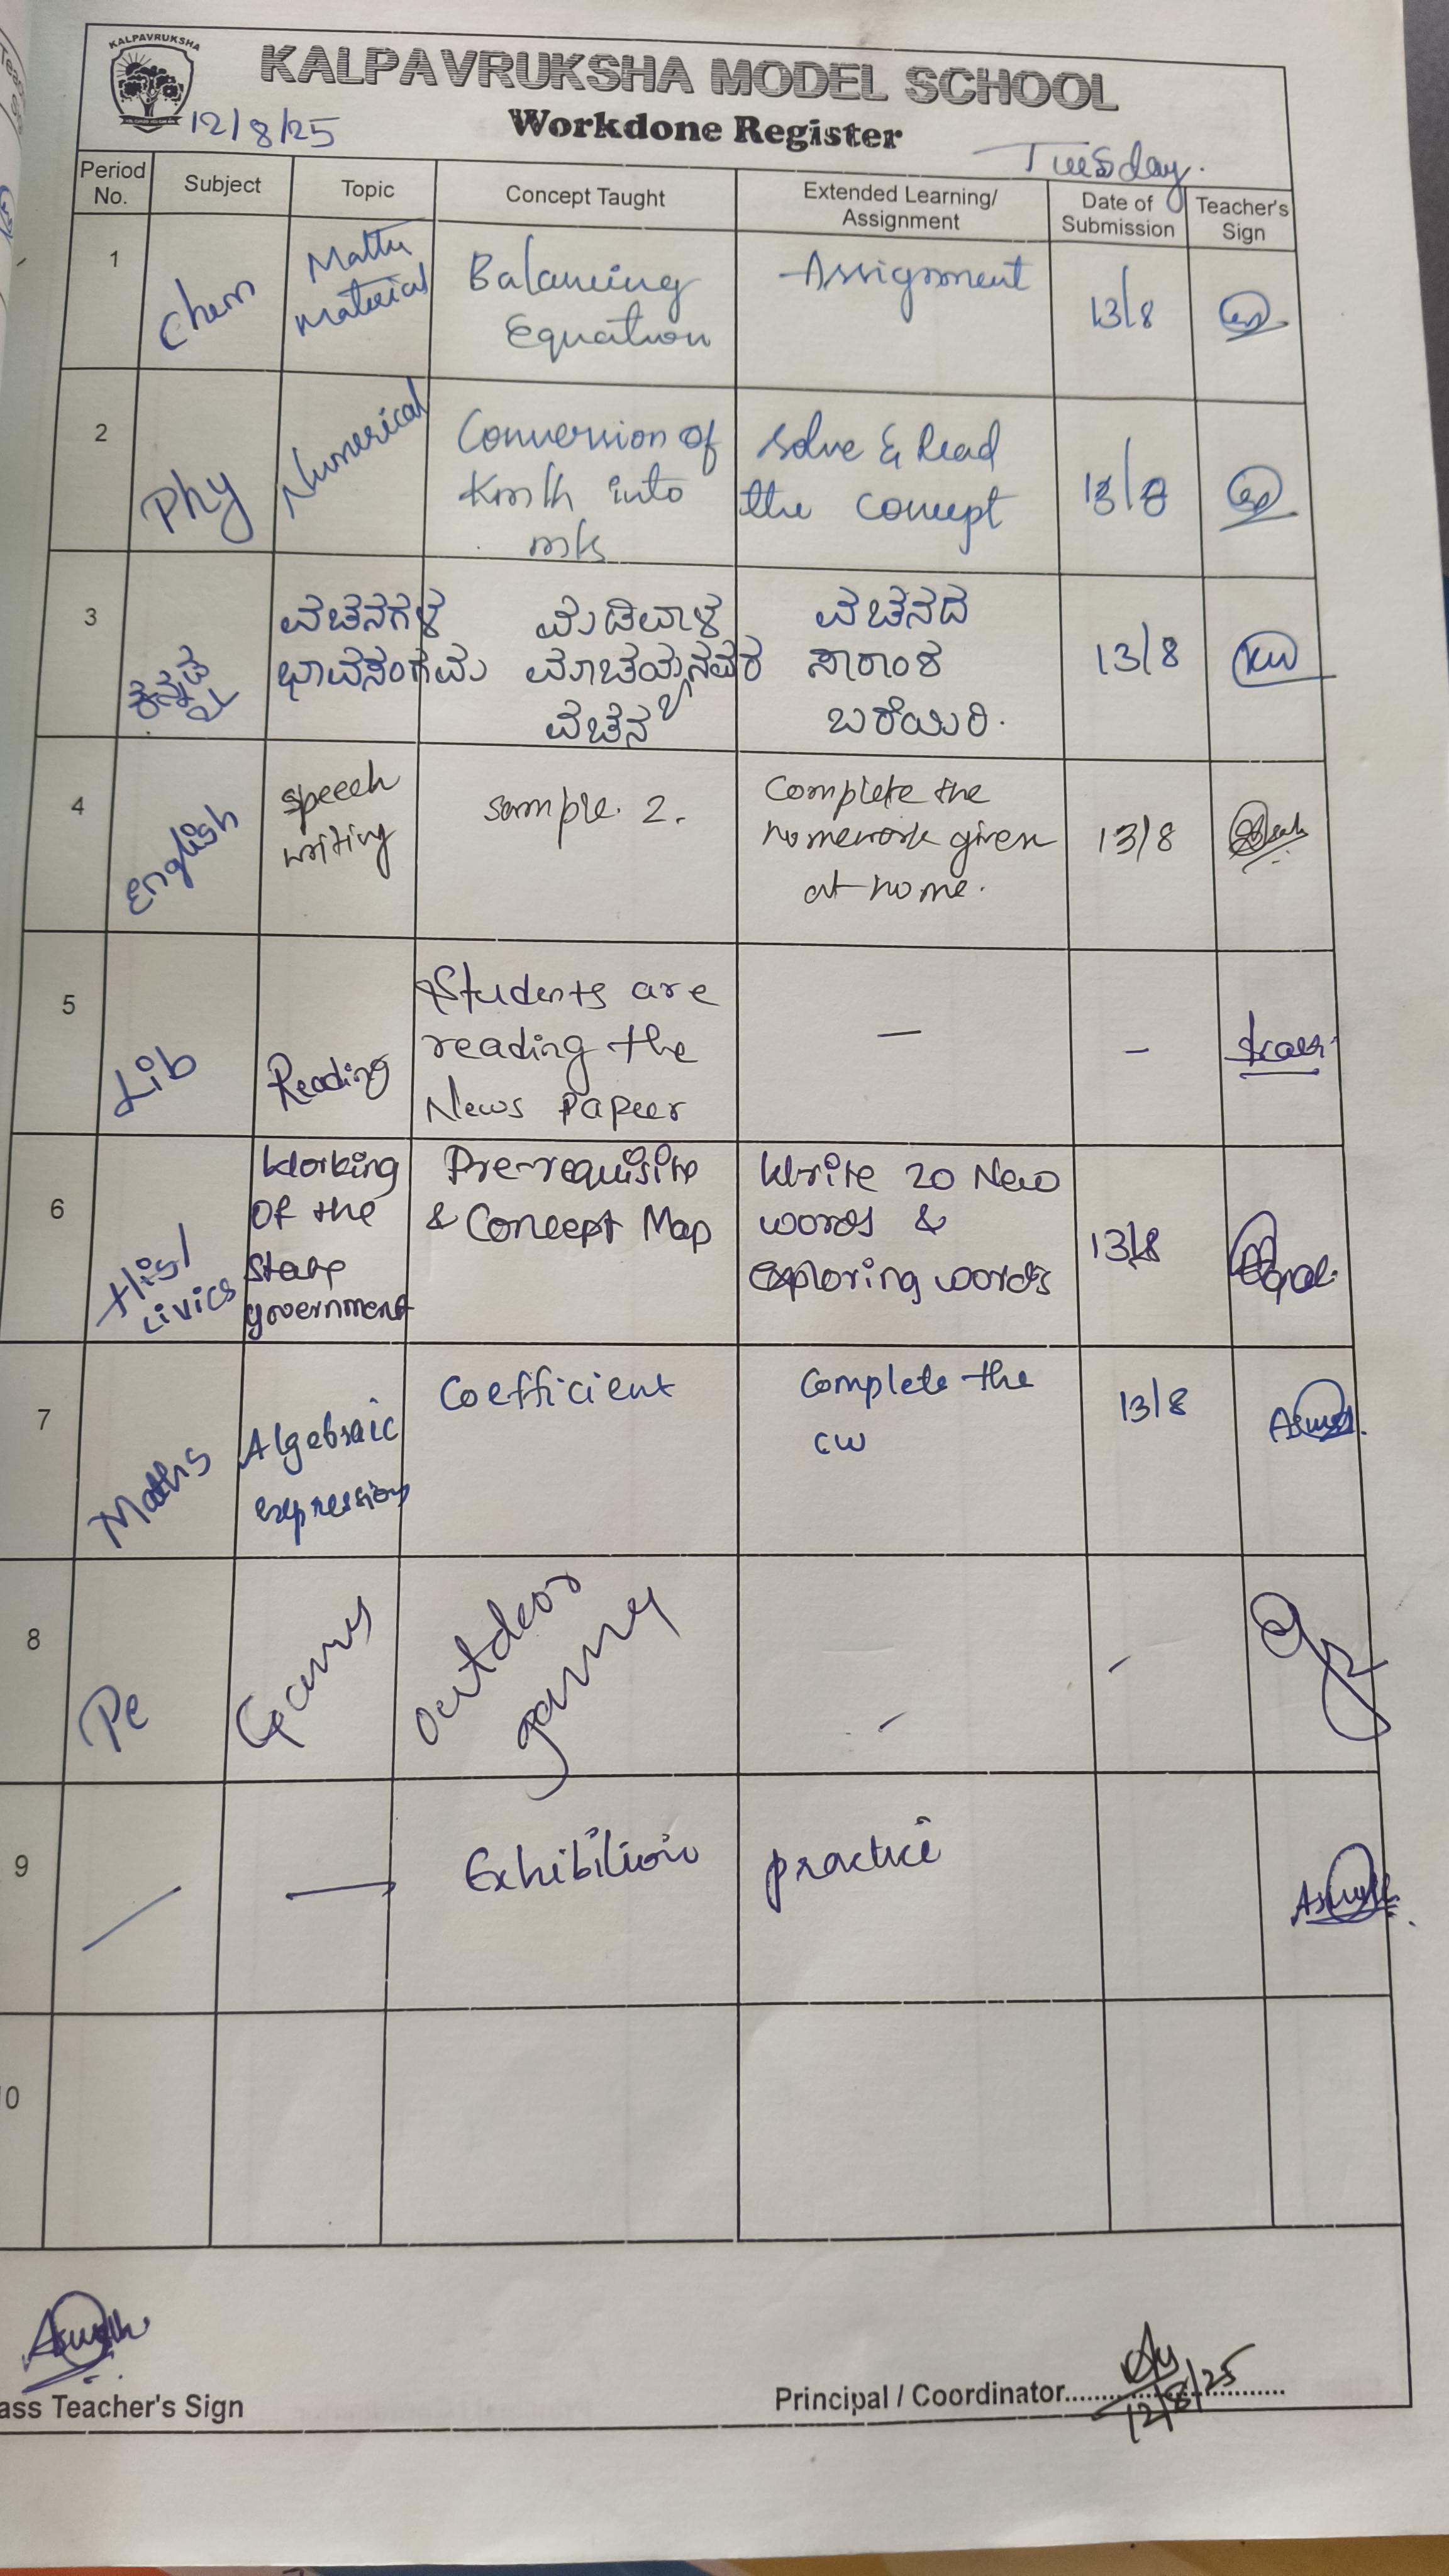 KALPAVRUKSHA
KALPAVRUKSHA MODEL SCHOOL
12/8/25
Workdone Register
Tuesday.
Period No.
Subject
Topic
Concept Taught
Extended Learning/
Assignment
Date of
Submission
Teacher's
Sign
1
Chem
material
Balancing
Equation
Assignment
13/8
2
Phy
Numerical
Conversion of
Km/h into
m/s
Solve & Read
the concept
13/8
3
ಕನ್ನಡ
ವಚನಗಳ
ಭಾವಸಂಗಮ
ಮಡಿವಾಳ
ಮಾಚಯ್ಯನವರ
ವಚನ
ವಚನದ
ಸಾರಾಂಶ
ಬರೆಯಿರಿ.
13/8
4
English
speech
writing
sample 2.
Complete the
homework given
at home.
13/8
5
Lib
Reading
Students are
reading the
News Papeer
—
–
6
His/
civics
Working
Of the
State
government
Pre-requisite
& Concept Map
Write 20 New
words &
exploring words
13/8
7
Maths
Algebraic
expression
Coefficient
Complete the
cw
13/8
8
Pe
Games
outdoor
games
–
–
9
—
Exhibition
practice
0
ass Teacher's Sign
Principal / Coordinator
12/8/25